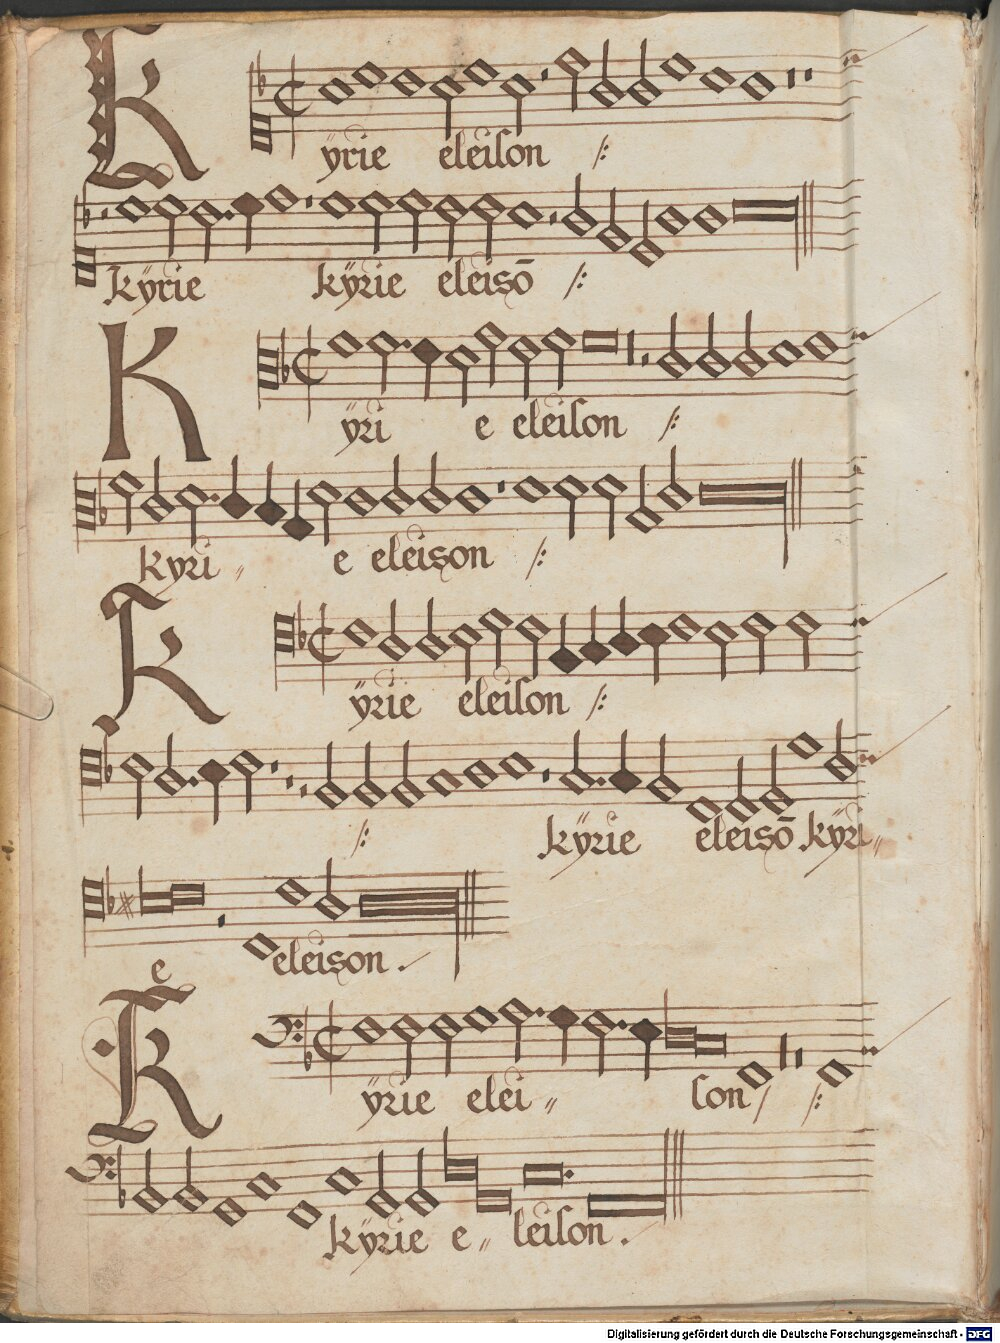 Kÿrie eleison :/:
kÿrie kÿrie eleisō :/:
Kÿri e eleison :/:
kyri〃 e eleison :/:
Kÿrie eleison :/:
:/: kÿrie eleisō kÿri〃
e eleison.
Kÿrie elei〃 son :/:
kÿrie e〃 leison.
Digitalisierung gefördert durch die Deutsche Forschungsgemeinschaft - DFG